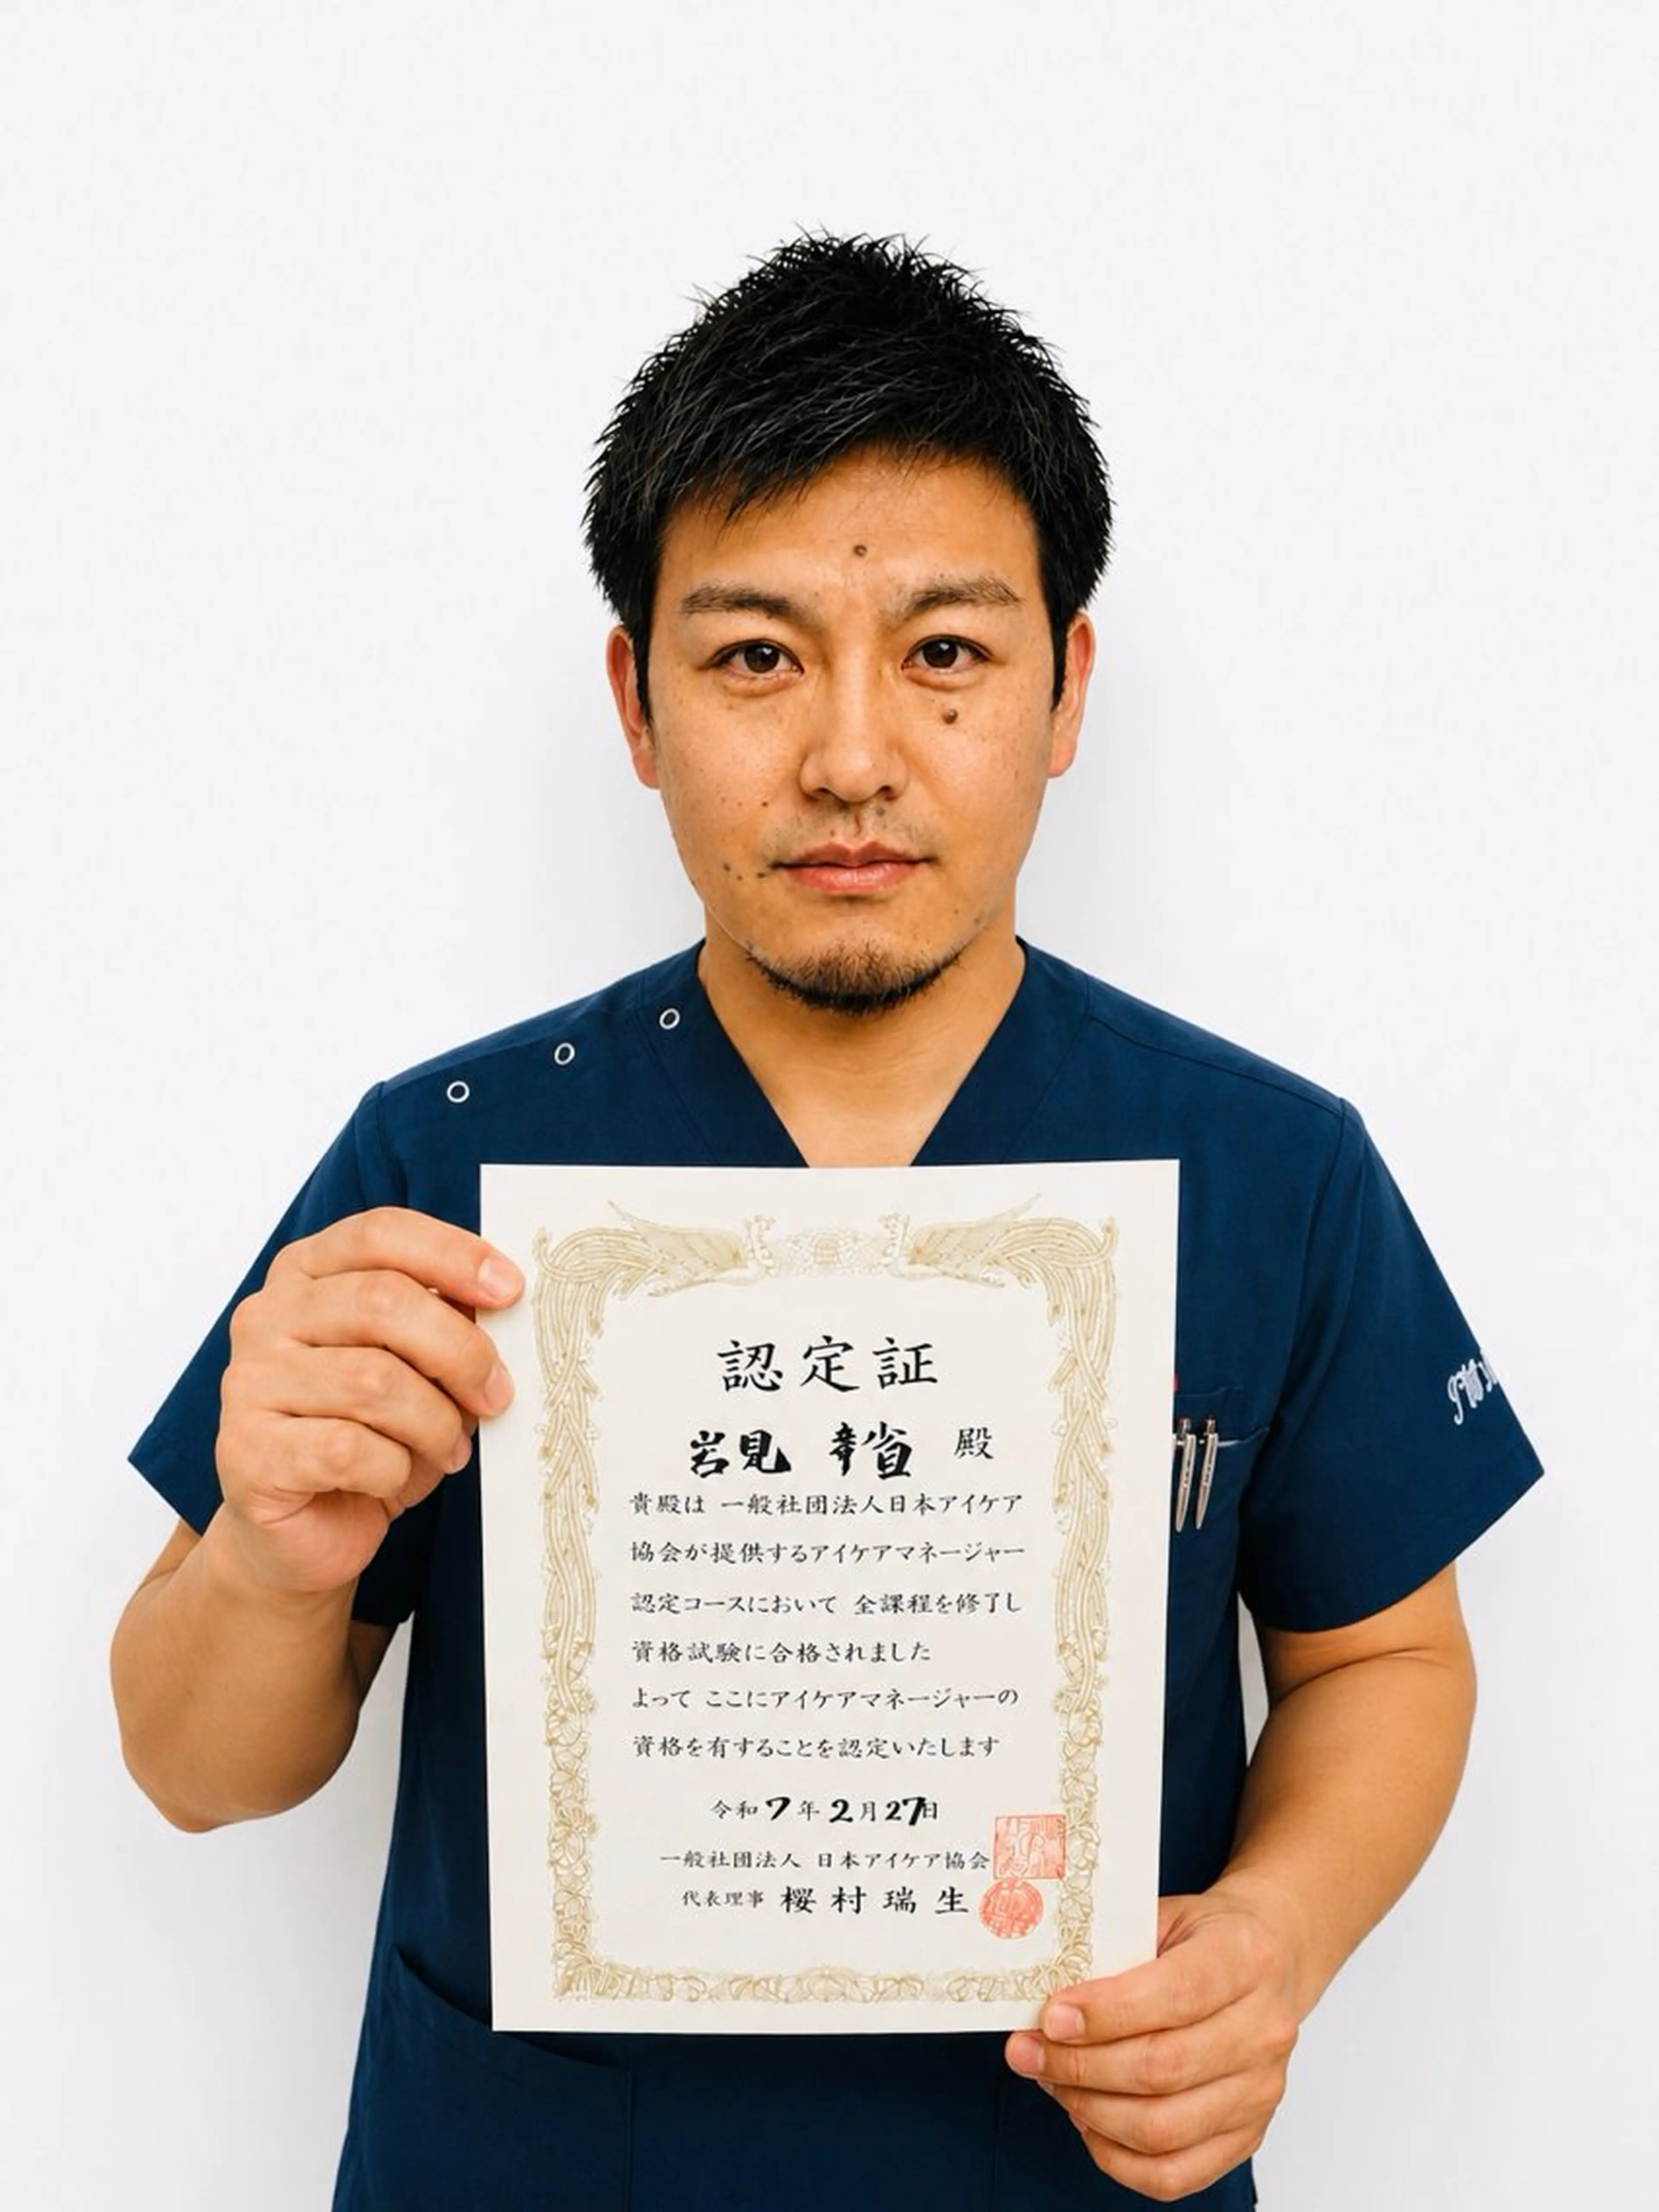 認定証
岩見 幸省 殿
貴殿は 一般社団法人日本アイケア
協会が提供するアイケアマネージャー
認定コースにおいて 全課程を修了し
資格試験に合格されました
よって ここにアイケアマネージャーの
資格を有することを認定いたします
令和7年2月27日
一般社団法人 日本アイケア協会
代表理事 桜村瑞生